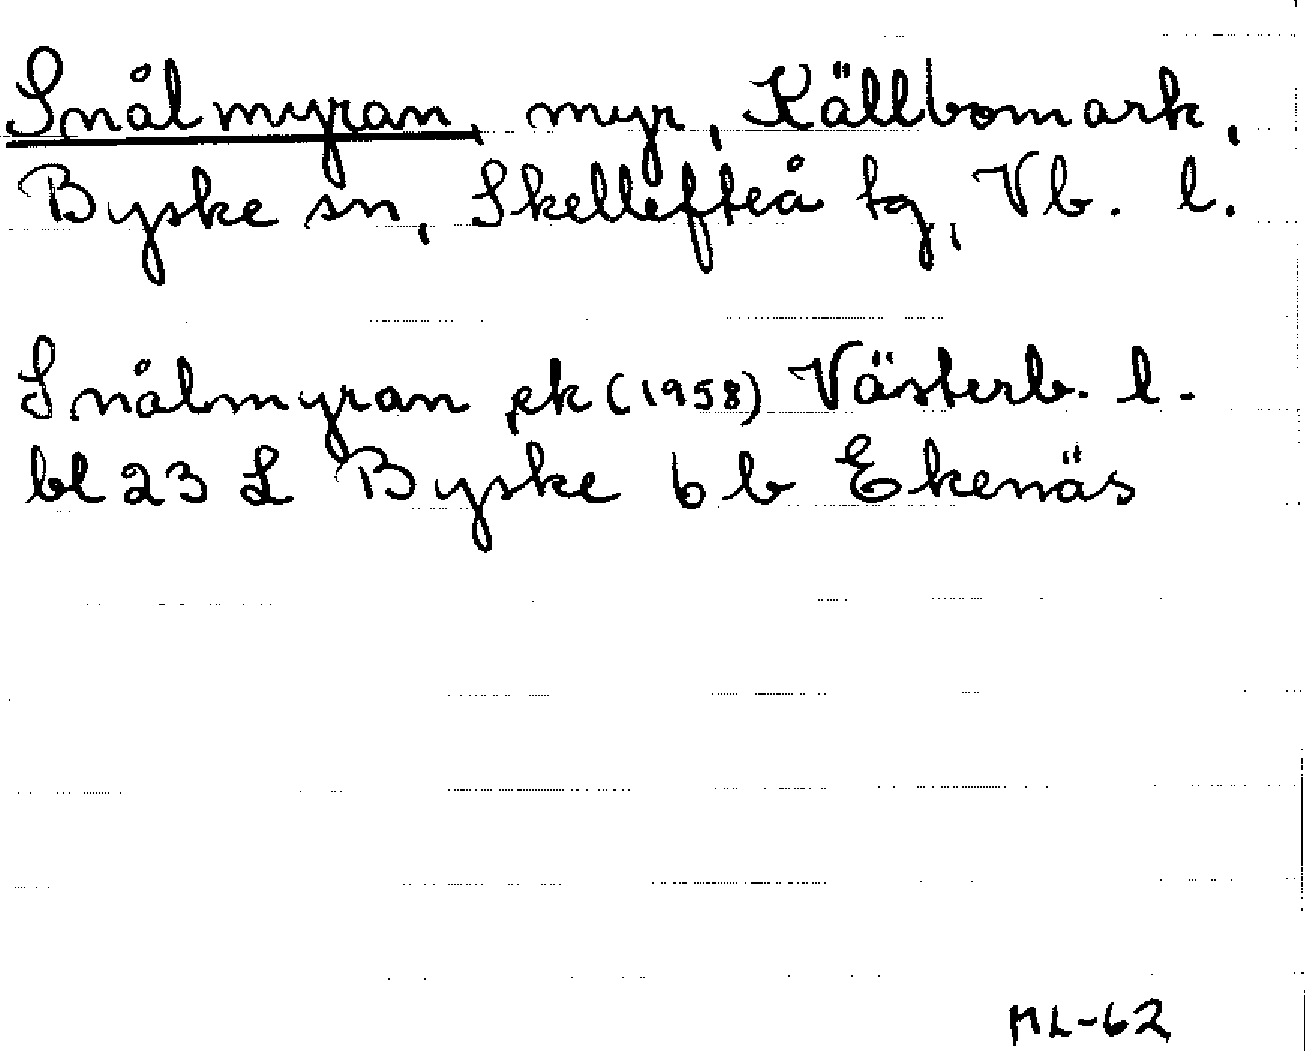 Snålmyran, myr, Källbomark,
Byske sn, Skellefteå tg, Vb. l.
Snålmyran ek (1958) Västerb. l.
bl 23 L Byske 6 b Ekenäs
ML-62